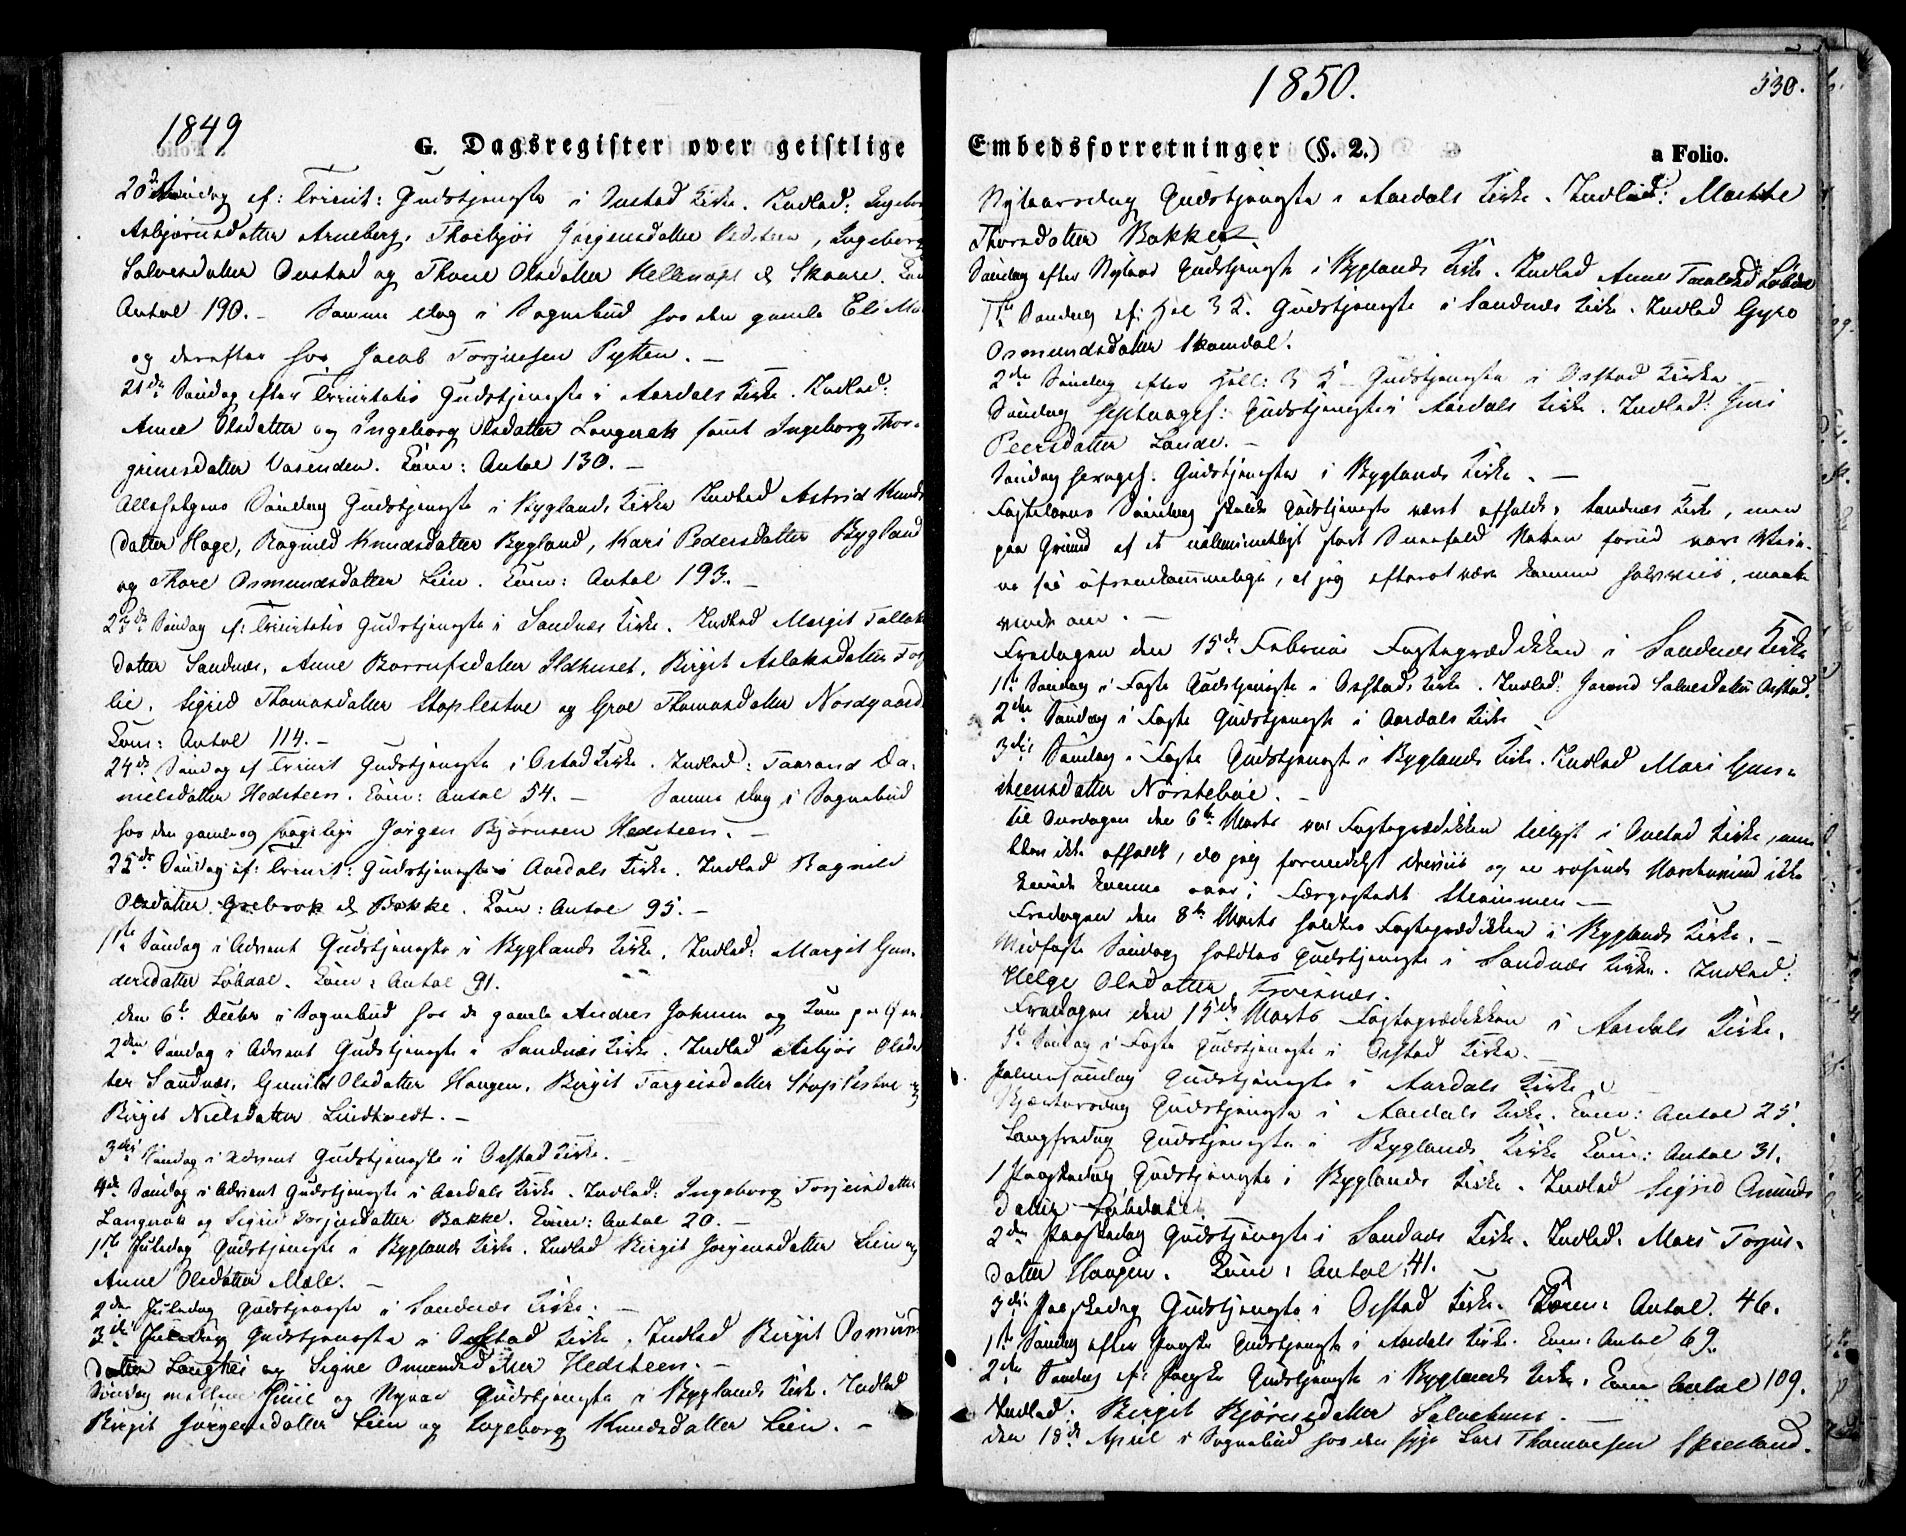 1849
G. Dagsregister over geistlige
20de Søndag ef: Trinit: Gudstjeneste i Austad Kirke. Indled: Ingeborg
Asbjørnsdatter Arneberg, Thorbjør Jørgensdatter Hedsteen, Ingeborg
Salvesdatter Austad og Thone Olsdatter
Antal 190. — Samme Dag i Sognebud hos den gamle Eli
og derefter hos Jacob Torjusen Pytten. —
21de Søndag efter Trinitatis Gudstjeneste i Aardals Kirke. Indled:
Anne Olsdatter og Ingeborg Olsdatter Langerak samt Ingeborg Thor-
grimsdatter Vasenden. Com: Antal 130. —
Allehelgens Søndag Gudstjeneste i Byglands Kirke Indled Astrid Knuds
datter Hage, Ragnild Knudsdatter Bygland, Kari Pedersdatter Bygland
og Thore Osmundsdatter Lien. Com: Antal 193. —
Søndag ef: Trinitatis Gudstjeneste i Sandnæs Kirke. Indled Margit
datter Sandnæs, Anne Ildhuset, Birgit Aslaksdatter
lie, Sigrid Thomasdatter Stoplestve og Groe Thomasdatter Nordgaard
Com: Antal 114. —
24de Søndag ef Trinit Gudstjeneste i Østad Kirke. Indled: Taarand Da-
nielsdatter Hedsteen. Com: Antal 54. — Samme Dag i Sognebud
hos den gamle og svagelige Jørgen Bjørnsen Hedsteen. —
25de Søndag ef: Trinit: Gudstjeneste i Aardals Kirke. Indled Ragnild
Olsdatter Bakke. Com: Antal 95. —
1ste Søndag i Advent Gudstjeneste i Byglands Kirke. Indled: Margit Gun-
dersdatter Lobdal. Com: Antal 91.
den 6te Decbr i Sognebud hos de gamle Andres Johnsen og
2den Søndag i Advent Gudstjeneste i Sandnæs Kirke. Indled Asbjør Olsdat
ter Sandnæs, Gunild Olsdatter Haugen, Birgit Torgeisdatter Stoplestve og
Birgit Nielsdatter Lindtvedt. —
3die Søndag i Advent Gudstjeneste i Østad Kirke. —
4de Søndag i Advent Gudstjeneste i Aardals Kirke. Indled: Ingeborg Torjeisdatter
Langerak og Sigrid Torjusdatter Bakke. Com: Antal 20. —
1ste Juledag Gudstjeneste i Byglands Kirke. Indled Birgit Jørgensdatter Lien og
Anne Olsdatter Mæle. —
2den Juledag Gudstjeneste i Sandnæs Kirke. —
3die Juledag Gudstjeneste i Østad Kirke. Indled Birgit Osmunds
datter Langhei og Signe Omundsdatter Hedsteen. —
Søndag mellem Juul og Nyaar Gudstjeneste i Byglands Kirke. Indled
Birgit Jørgensdatter Lien og Ingeborg Knudsdatter Lien. —
1850.
530.
Embedsforretninger (§. 2.)
a Folio.
Nytaarsdag Gudstjeneste i Aardals Kirke. Indled: Marthe
Thorsdatter Bakke.
Søndag efter Nytaar Gudstjeneste i Byglands Kirke. Indled Anne Lobdal
1ste Søndag ef: Hel 3 K. Gudstjeneste i Sandnæs Kirke. Indled Gyro
Osmundsdatter Skamdal.
2den Søndag efter Hell: 3 K Gudstjeneste i Østad Kirke
Søndag Septuages: Gudstjeneste i Aardals Kirke. Indled: Guri
Peersdatter Lande. —
Søndag Sexages: Gudstjeneste i Byglands Kirke. —
Fastelavns Søndag skulde Gudstjeneste været afholdt i Sandnæs Kirke, men
paa Grund af et ualmindeligt stort Sneefald Natten forud vare Veie-
ne saa ufremkommelige, at jeg efter at være kommen halvveis, maatte
vende om. —
Fredagen den 15de Februar Fasteprædikken i Sandnæs Kirke
1ste Søndag i Faste Gudstjeneste i Østads Kirke. Indled: Jorand Salvesdatter Østad.
2den Søndag i Faste Gudstjeneste i Aardals Kirke
3die Søndag i Faste Gudstjeneste i Byglands Kirke. Indled Mari Gun-
steensdatter Nørstebøe. —
Til Onsdagen den 6te Marts var Fasteprædikken tillyst i Austad Kirke, men
blev ikke afholdt, da jeg formedelst og en rasende Nordenvind ikke
kunde komme over i Færgestedet Strømmen —
Fredagen den 8de Marts holdtes Fasteprædikken i Byglands Kirke. —
Midfaste Søndag holdtes Gudstjeneste i Sandnæs Kirke. Indled:
Helge Olsdatter Froisnæs.
Fredagen den 15de Marts Fasteprædikken i Aardals Kirke.
5te Søndag i Faste Gudstjeneste i Østad Kirke. —
Palmesøndag Gudstjeneste i Aardals Kirke
Skjærtorsdag Gudstjeneste i Aardals Kirke. Com: Antal 25.
Langfredag Gudstjeneste i Byglands Kirke Com: Antal 31.
1 Paaskedag Gudstjeneste i Byglands Kirke. Indled Sigrid Omunds
datter Lobdal.
2den Paaskedag Gudstjeneste i Sandnæs Kirke. Indled: Mari Torjus-
datter Haugen. Com: Antal 41.
3die Paaskedag Gudstjeneste i Østad Kirke. Com: Antal. 46.
1ste Søndag efter Paaske Gudstjeneste i Aardals Kirke. Com: Antal 69.
2den Søndag ef: Paaske Gudstjeneste i Byglands Kirke. Com Antal 109.
Indled: Birgit Bjørnsdatter
den 18de April i Sognebud hos den syge Lars Thomassen Skreeland.